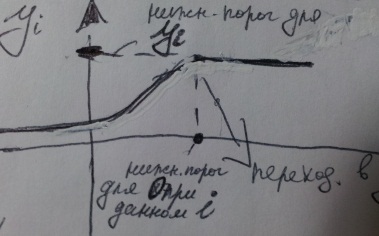 yi нижн. порог для
yi
нижн. порог
для 0 при
данном i
переход. в